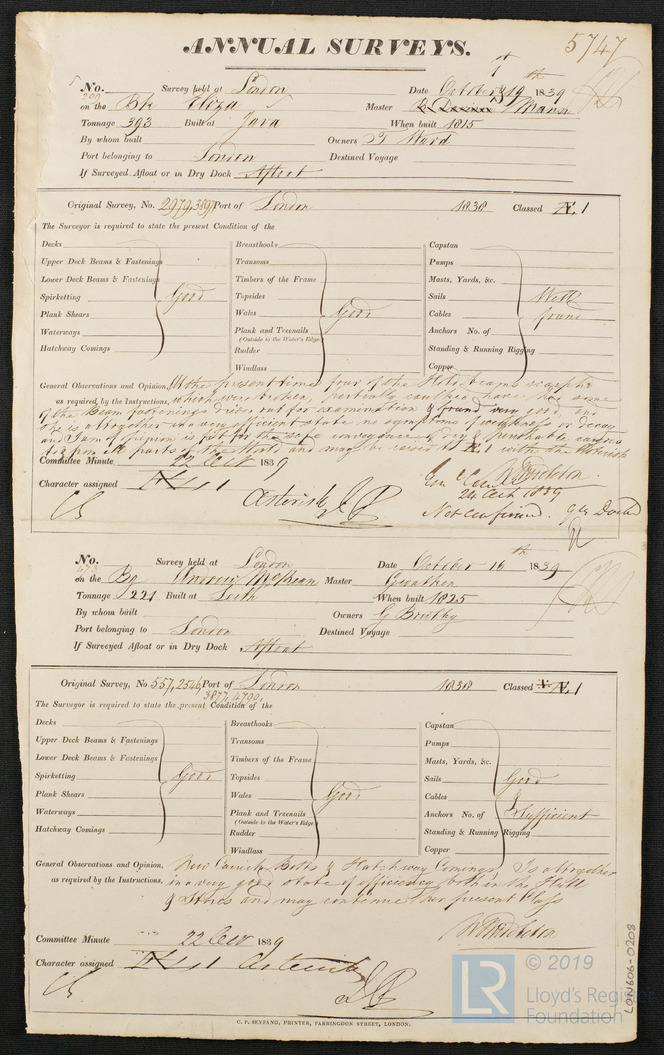 ANNUAL SURVEYS.
5747
No. Survey held at London Date October 19th 1839
on the Bk Eliza Master Mann
Tonnage 393 Built at Java When built 1815
By whom built Owners T Ward
Port belonging to London Destined Voyage
If Surveyed Afloat or in Dry Dock Afloat
Original Survey, No. 2979, Port of London 1838 Classed Æ 1
The Surveyor is required to state the present Condition of the
Decks
Upper Deck Beams & Fastenings
Lower Deck Beams & Fastenings
Spirketting Good
Plank Shears
Waterways
Hatchway Comings
Breasthooks
Transoms
Timbers of the Frame
Topsides
Wales Good
Plank and Treenails
(Outside to the Water's Edge)
Rudder
Windlass
Capstan
Pumps
Masts, Yards, &c.
Sails Well
Cables found
Anchors No. of
Standing & Running Rigging
Copper
General Observations and Opinion, At the present time four of the Hold beams
as required by the Instructions, which were broken, partially have had some
of the Beam fastenings driven out for examination & found very good, and
she is altogether in a very efficient state no symptoms of weakness or decay
and I am of opinion is fit for the safe conveyance of dry & perishable cargoes
to & from all parts of the World and may be raised to Æ 1 with the Asterisk
Committee Minute 22 Oct 1839
Character assigned Æ 1
Asterisk
24 Oct 1839
Not confirmed.
No. Survey held at London Date October 16th 1839
on the Bg Andrew McKean Master Greathen
Tonnage 221 Built at Leith When built 1825
By whom built Owners G Brodby
Port belonging to London Destined Voyage
If Surveyed Afloat or in Dry Dock Afloat
Original Survey, No 557, 2546, Port of London 1838 Classed Æ 1
3877, 4790,
The Surveyor is required to state the present Condition of the
Decks
Upper Deck Beams & Fastenings
Lower Deck Beams & Fastenings
Spirketting Good
Plank Shears
Waterways
Hatchway Comings
Breasthooks
Transoms
Timbers of the Frame
Topsides
Wales Good
Plank and Treenails
(Outside to the Water's Edge)
Rudder
Windlass
Capstan
Pumps
Masts, Yards, &c.
Sails Good
Cables &
Anchors No. of Sufficient
Standing & Running Rigging
Copper
General Observations and Opinion, New Carrick Bitts & Hatchway Comings, Is altogether
as required by the Instructions, in a very good state of efficiency both in the Hull
& Stores and may continue her present Class
Committee Minute 22 Oct 1839
Character assigned Æ 1 Asterisk
C. F. SEYFANG, PRINTER, FARRINGDON STREET, LONDON.
LON606-0208
LR © 2019
Lloyd's Register
Foundation